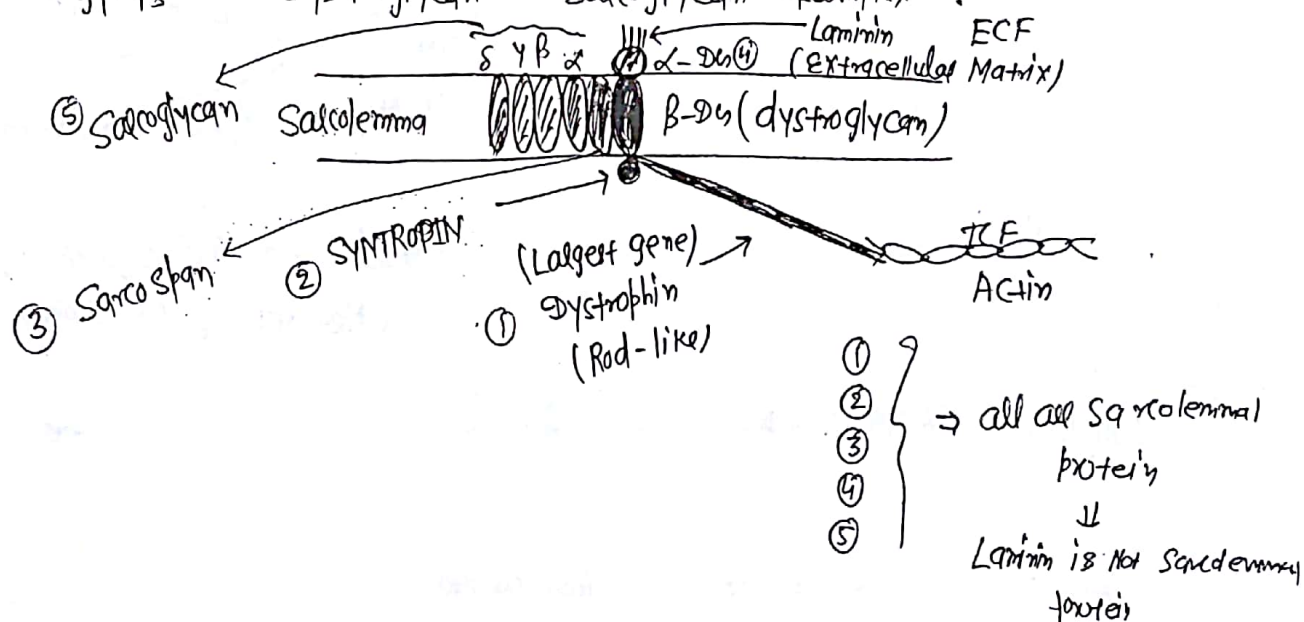 δ γ β α
Laminin ECF
α-Des④ (Extracellular Matrix)
⑤ Sarcoglycan
Sarcolemma
β-Des (dystroglycan)
③ Sarcospan
② SYNTROPIN
(Largest gene)
① Dystrophin
(Rod-like)
ICF
Actin
①
②
③ ⇒ all are Sarcolemmal
④ protein
⑤ ⇓
Laminin is Not Sarcolemmal
protein